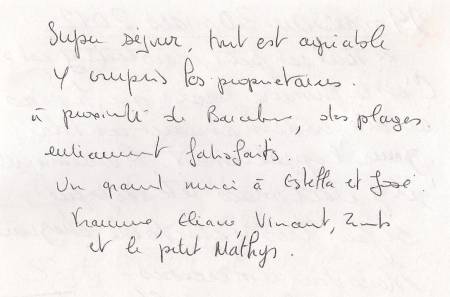 Super séjour, tout est agréable
Y compris les propriétaires.
à proximité de Barcelone, des plages.
entièrement satisfaits.
Un grand merci à Estella et José.
Eliane, Vincent,
et le petit Mathys.